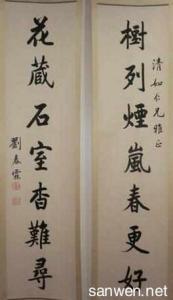 樹列煙嵐春更好
清如仁兄雅正
花藏石室杳難尋
劉春霖
sanwen.net